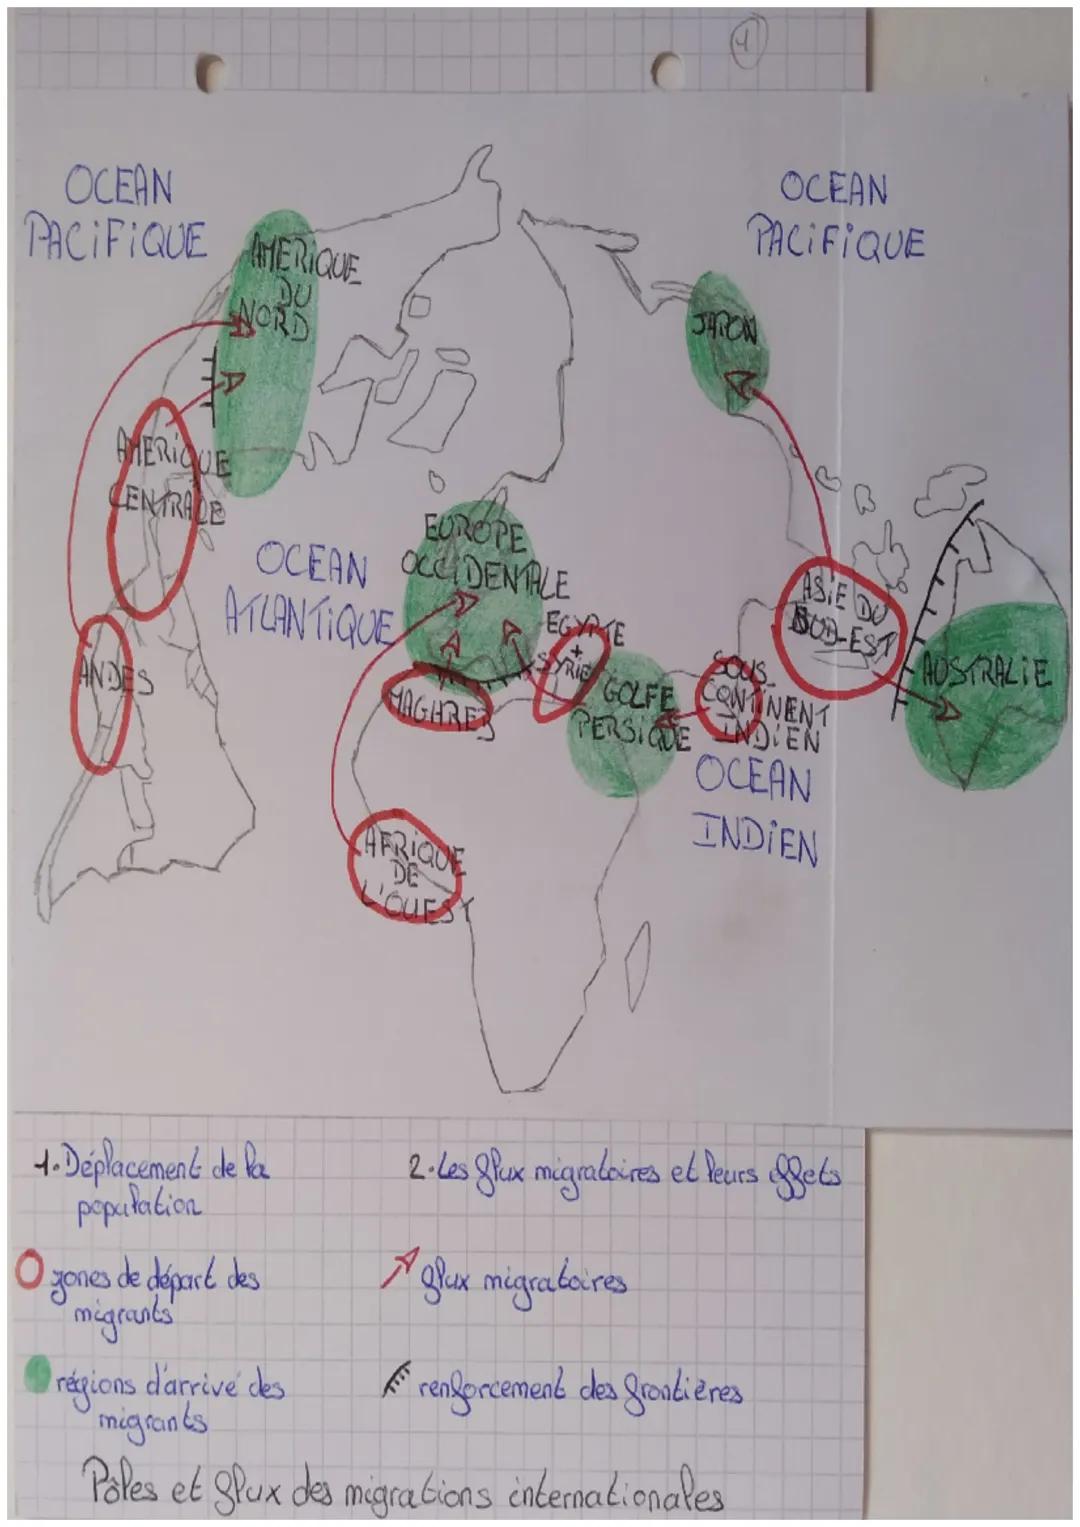 4
OCEAN
PACIFIQUE
OCEAN
PACIFIQUE
AMERIQUE
DU
NORD
JAPON
AMERIQUE
CENTRALE
EUROPE
OCCIDENTALE
OCEAN
ATLANTIQUE
EGYPTE
+
SYRIE
ASIE DU
SUD-EST
ANDES
MAGHREB
GOLFE
PERSIQUE
SOUS-
CONTINENT
INDIEN
AUSTRALIE
OCEAN
INDIEN
AFRIQUE
DE
L'OUEST
1. Déplacement de la
population
zones de départ des
migrants
régions d'arrivé des
migrants
2. Les flux migratoires et leurs effets
flux migratoires
renforcement des frontières
Pôles et flux des migrations internationales